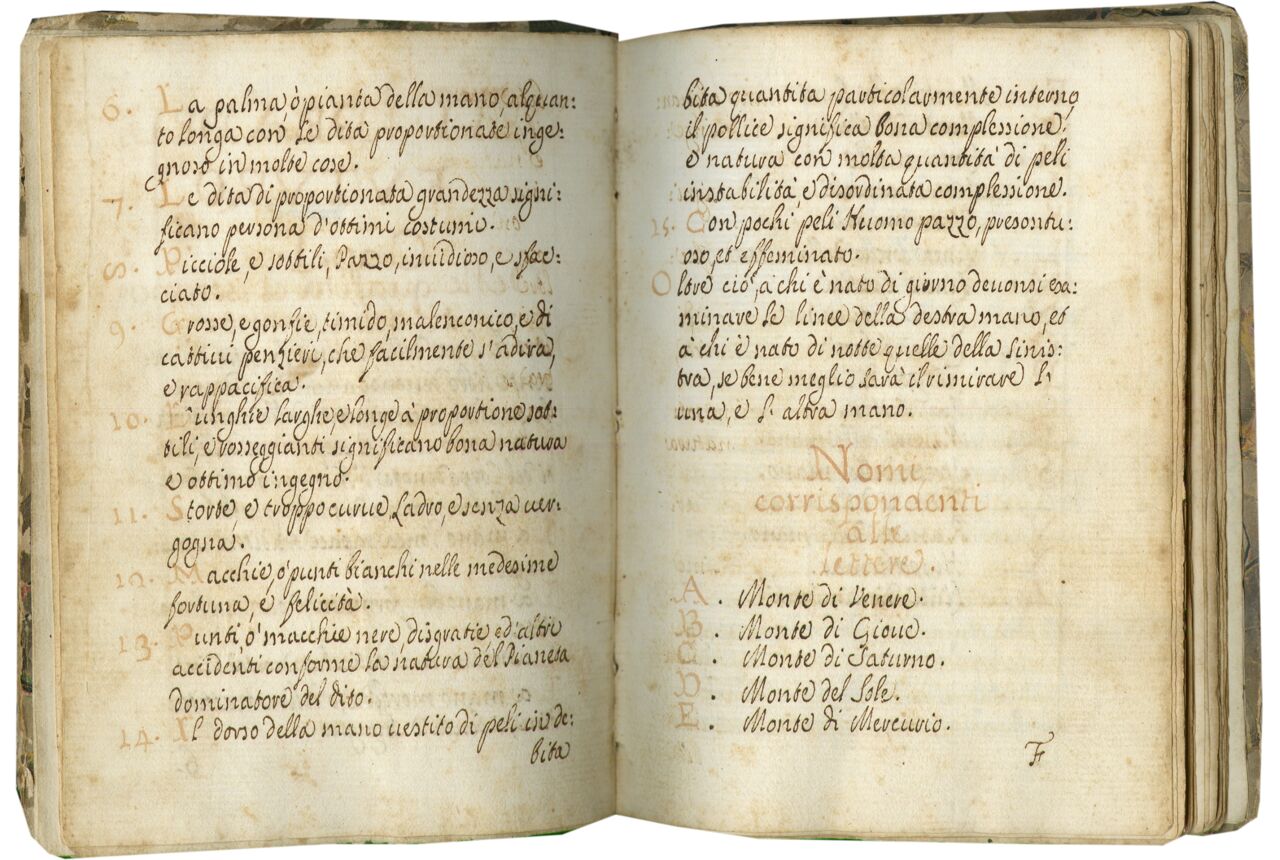 6. La palma, ò pianta della mano, alquan:
to longa con le dita proportionate inge:
gnoso in molte cose.
7. Le dita di proportionata grandezza signi:
ficano persona d'ottimi costumi.
8. Picciole, e sottili, Pazzo, inuidioso, e sfac:
ciato.
9. Grosse, e gonfie, timido, malenconico, e di
cattiui penzieri, che facilmente s'adira,
e rappacifica.
10. L'unghie larghe, e longe à proportione sot:
tili, e rosseggianti significano bona natura
e ottimo ingegno.
11. Storte, e troppo curue, Ladro, e senza uer:
gogna.
12. Macchie, ò punti bianchi nelle medesime
fortuna, e felicità.
13. Punti, ò macchie nere, disgratie ed'altri
accidenti conforme la natura del Pianeta
dominatore del dito.
14. Il dorso della mano uestito di peli in de:
bita
bita quantita particolarmente interno
il pollice significa bona complessione.
e natura con molta quantità di peli
instabilità, e disordinata complessione.
15. Con pochi peli Huomo pazzo, presontu:
oso, et effeminato.
Oltre ciò, à chi è nato di giorno deuonsi exa:
minare le linee della destra mano, et
à chi è nato di notte quelle della sinis:
tra, se bene meglio sarà il rimirare l'
una, e l'altra mano.
Nomi
corrispondenti
alle
lettere.
A. Monte di Venere.
B. Monte di Gioue.
C. Monte di Saturno.
D. Monte del Sole.
E. Monte di Mercurio.
F